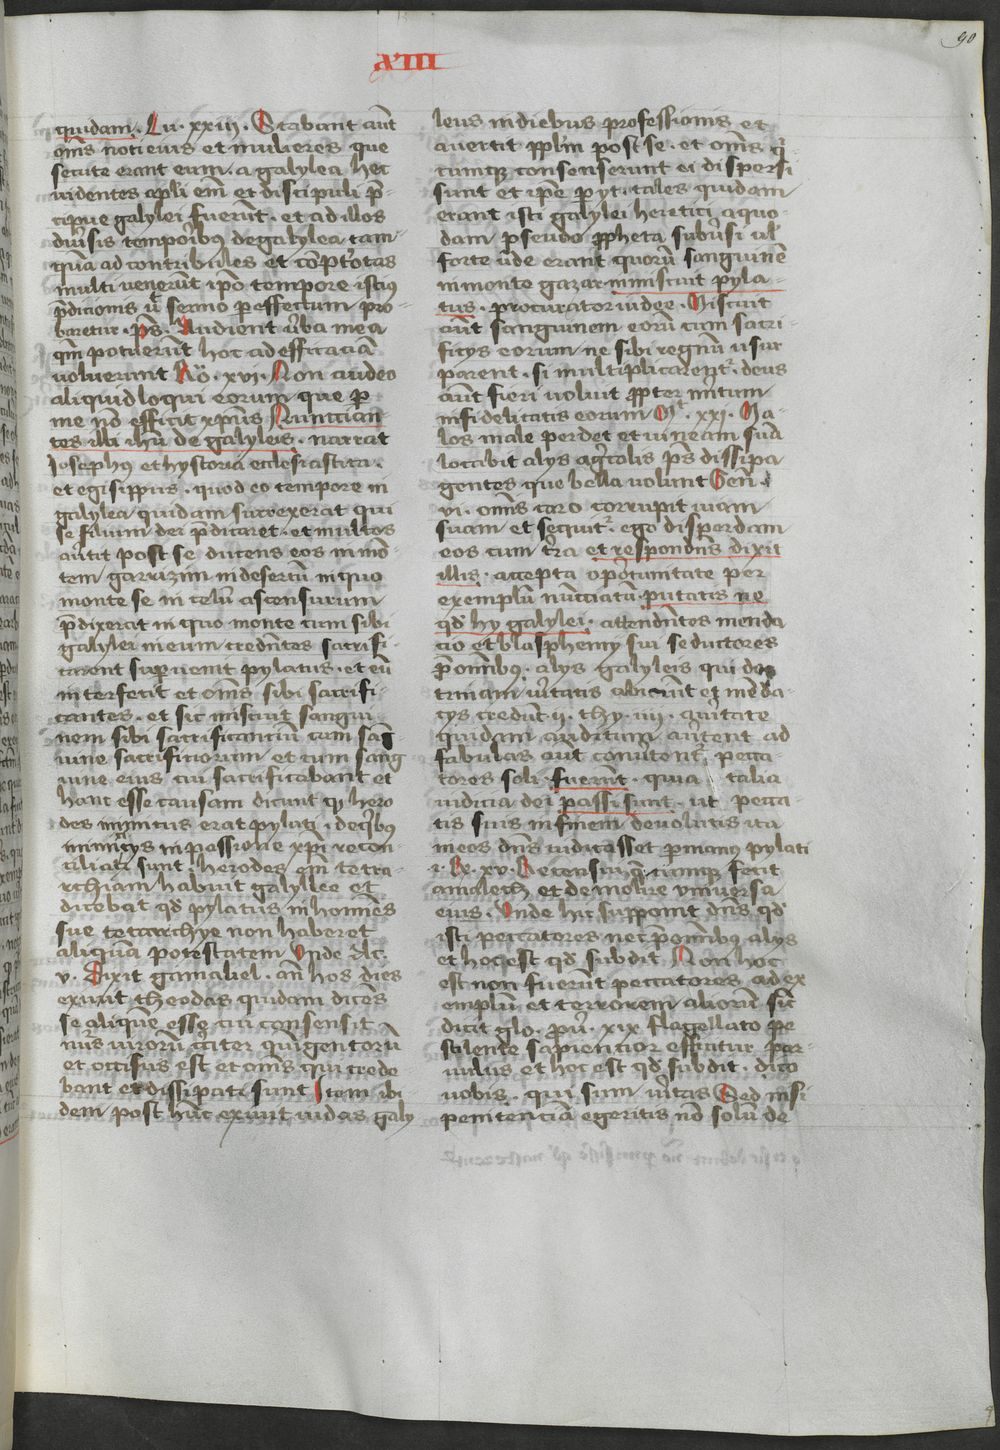 90
XIII
quidam. Lu. xxiij. Stabant aūt
om̄s noti eius et mulieres que
secute erant eum. a galylea hec
uidentes apl̄i em̄ et discipuli p̄
cipue galylei fuerūt. et ad illos
diu͛sis tempor̄ibus de galylea tam
quā ad contribules et com̄ptotas
multi venerūt ip̄o tempore istius
p̄ditionis ut sermo per effectum pro
baretur. p̄s. Audient v̄ba mea
qm̄ potuerūt hoc ad efficatiā
uoluerunt Rō. xvi. Non audeo
aliquid loqui eorum que per
me nō efficit xp̄us Nunctian
tes illi ihū de galyleis. narrat
Iosephus et hystoria ecclesiastica.
et egisippus. quod eo tempore in
galylea quidam surrexerat qui
se filium dei p̄dicaret. et multos
au͛tit post se ducens eos in mō
tem garrizim in desertū in quo
monte se in celū ascensurum
p̄dixerat in quo monte cum sibi
galylei in eum credn̄tes sacrifi
carent superuenit pylatus. et eū
interfecit et om̄s sibi sacrifi
cantes. et sic miscuit sangui
nem sibi sacrificanciū cum sag
uine sacrificiorum et cum sang
uine eius cui sacrificabant et
hanc esse causam dicunt qꝫ hero
des inimicus erat pylati. de qͥbus
inimicys in passione xp̄i recon
ciliati sunt. herodes em̄ tetra
rchiam habuit galylee et
dicebat qd̓ pylatus in homēs
sue tetrarchye non haberet
aliquā potestatem Vnde Ac͛.
v. Dixit gamaliel. an̄ hos dies
exiuit theodas quidam dicēs
se aliquē esse cui consensit
nūs uirorū c͛citer quīgentorū
et occisus est et om̄s qui crede
bant ei dissipati sunt Item ibi
dem post hūc exiuit iudas galy
leus in diebus professionis et
auertit ppl̄m post se. et om̄s q
cumqꝫ consenserunt ei dispersi
sunt et ip̄e peryt. tales quidam
erant isti galylei heretici a quo
dam pseudo ꝓpheta subu͛si ul̓
forte v̄de erant quorū sanguinē
in monte garar inmiscuit pyla
tus. procurator iudee. Miscuit
aūt sanguinem eorū cum sacri
ficys eorum ne sibi regnū usur
parent. si multiplicarent͛. deus
aūt fieri uoluit ꝓpter m͛itum
infidelitatis eorum Mͭ. xxi. Ma
los male perdet et uineam suā
locabit alys ag͛colis p̄s dissipa
gentes que bella uolunt Gen.
vi. om̄s caro corrupit uiam
suam et sequit͛. ego disperdam
eos cum t͛ra et respondn̄s dixit
illis. accepta op̄ortunitate per
exemplū nūcciatū. putatis ne
qd̓ hy galylei. attendn̄tes menda
cio et blasphemy sui seductores
p̄ om̄ibus. alys galyleis qui doc
trinam v͛itatis abierūt et mēda
cys credūt. ij. thy. iiij. a v͛itate
quidam auditum au͛tent ad
fabulas aūt conu͛tent͛. pecca
tores soli. fuerūt. quia talia
iudicia dei passi sunt. ut pecca
tis suis in finem deuolutis ita
in eos dn̄s iudicasset p̱ manus pylati
i. R. xv. Recensui q̄cumqꝫ fecit
amalech et demolire vniuersa
eius. Vnde hic supponit dn̄s qd̓
isti peccatores nec p̄ om̄ibus alys
et hoc est qd̓ subdit. Non hoc
est non fuerūt peccatores ad ex
emplū et terrorem aliorū sū
dicit glo. p̱u͛. xix. flagellato pe
stilente sapiencior efficitur par
uulus et hoc est qd̓ subdit. dico
uobis. qui sum v͛itas Sed nisi
penitenciā egeritis nō solū de